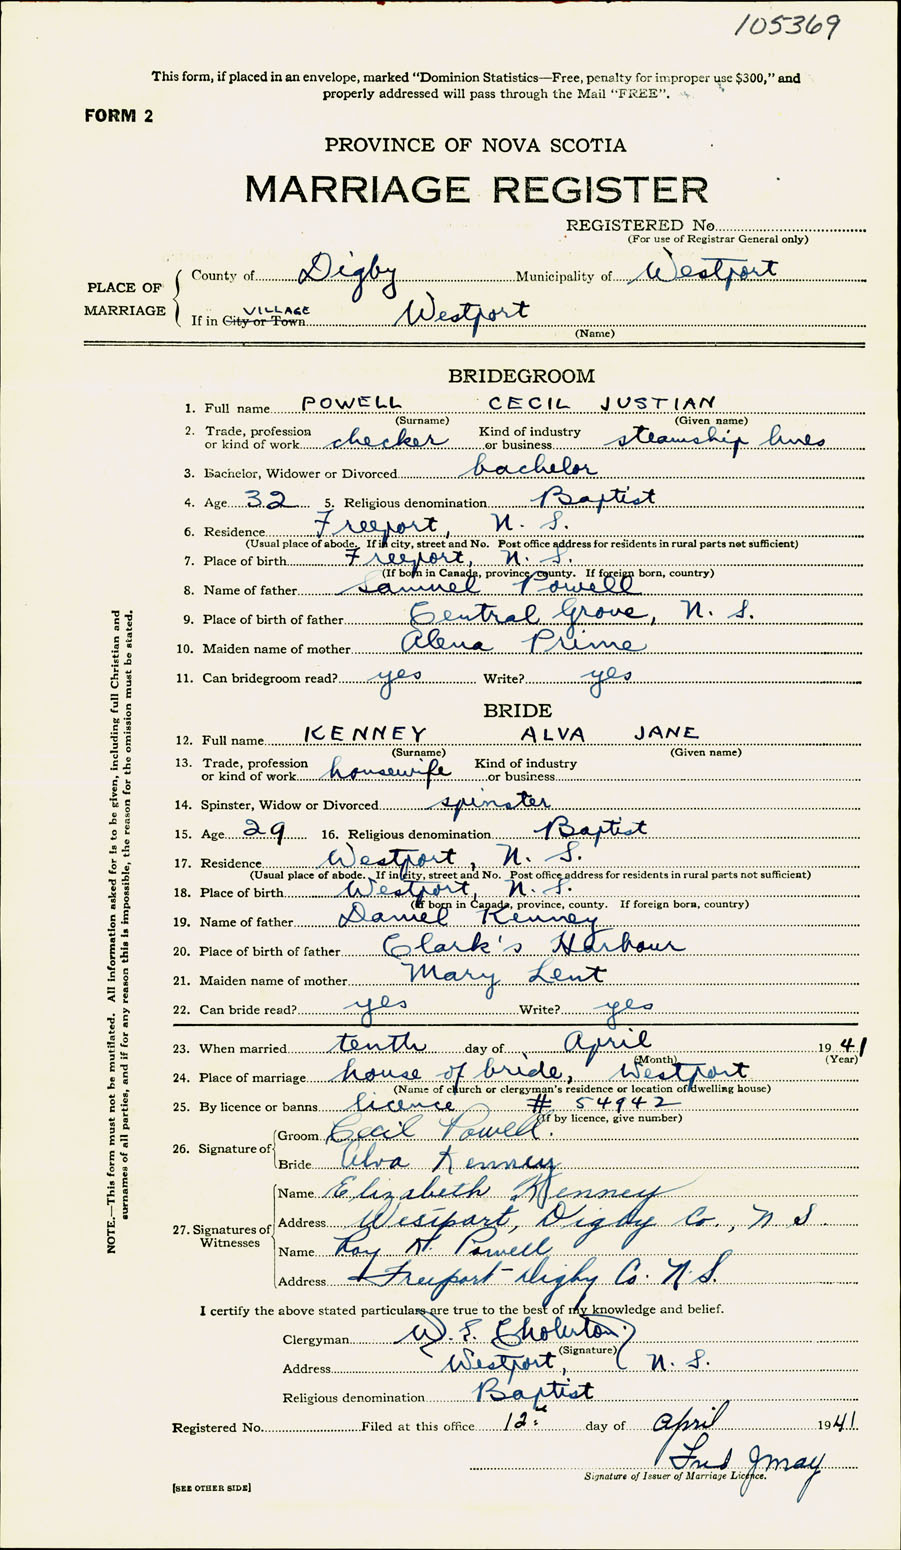 105369
This form, if placed in an envelope, marked "Dominion Statistics—Free, penalty for improper use $300," and
properly addressed will pass through the Mail "FREE".
FORM 2
PROVINCE OF NOVA SCOTIA
MARRIAGE REGISTER
REGISTERED No.
(For use of Registrar General only)
PLACE OF MARRIAGE
County of Digby Municipality of Westport
VILLAGE
If in City or Town Westport
(Name)
BRIDEGROOM
1. Full name POWELL CECIL JUSTIAN
(Surname) (Given name)
2. Trade, profession or kind of work checker Kind of industry or business steamship lines
3. Bachelor, Widower or Divorced bachelor
4. Age 32 5. Religious denomination Baptist
6. Residence Freeport, N. S.
(Usual place of abode. If in city, street and No. Post office address for residents in rural parts not sufficient)
7. Place of birth Freeport, N. S.
(If born in Canada, province, county. If foreign born, country)
8. Name of father Samuel Powell
9. Place of birth of father Central Grove, N. S.
10. Maiden name of mother Alena Prime
11. Can bridegroom read? yes Write? yes
BRIDE
12. Full name KENNEY ALVA JANE
(Surname) (Given name)
13. Trade, profession or kind of work housewife Kind of industry or business
14. Spinster, Widow or Divorced spinster
15. Age 29 16. Religious denomination Baptist
17. Residence Westport, N. S.
(Usual place of abode. If in city, street and No. Post office address for residents in rural parts not sufficient)
18. Place of birth Westport, N. S.
(If born in Canada, province, county. If foreign born, country)
19. Name of father Daniel Kenney
20. Place of birth of father Clark's Harbour
21. Maiden name of mother Mary Lent
22. Can bride read? yes Write? yes
23. When married tenth day of April 1941
(Month) (Year)
24. Place of marriage house of bride, Westport
(Name of church or clergyman's residence or location of dwelling house)
25. By licence or banns licence # 54942
(If by licence, give number)
26. Signature of
Groom Cecil Powell.
Bride Alva Kenney
27. Signatures of Witnesses
Name Elizabeth Kenney
Address Westport, Digby Co., N S.
Name Roy H. Powell
Address Freeport Digby Co. N.S.
I certify the above stated particulars are true to the best of my knowledge and belief.
Clergyman W. E.
(Signature)
Address Westport, N. S.
Religious denomination Baptist
Registered No. Filed at this office 12 day of April 1941
Signature of Issuer of Marriage Licence.
[SEE OTHER SIDE]
NOTE.—This form must not be mutilated. All information asked for is to be given, including full Christian and
surnames of all parties, and if for any reason this is impossible, the reason for the omission must be stated.